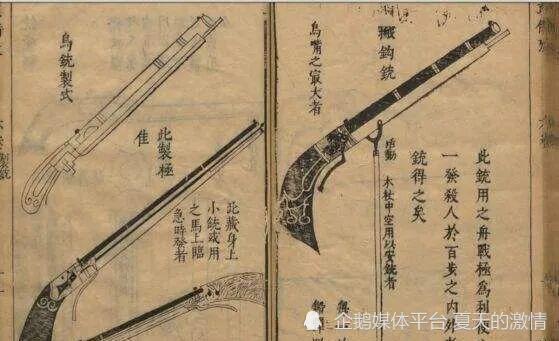 此銃用之舟戰極為利
一發殺人於百步之內外
銃得之矣
鈎銃
鳥嘴之㝡大者
活動
木杖中空用以安銃者
此藏身上
小銃或用
之馬上臨
急時發者
此製極
佳
鳥銃製式
企鹅媒体平台 夏天的激情